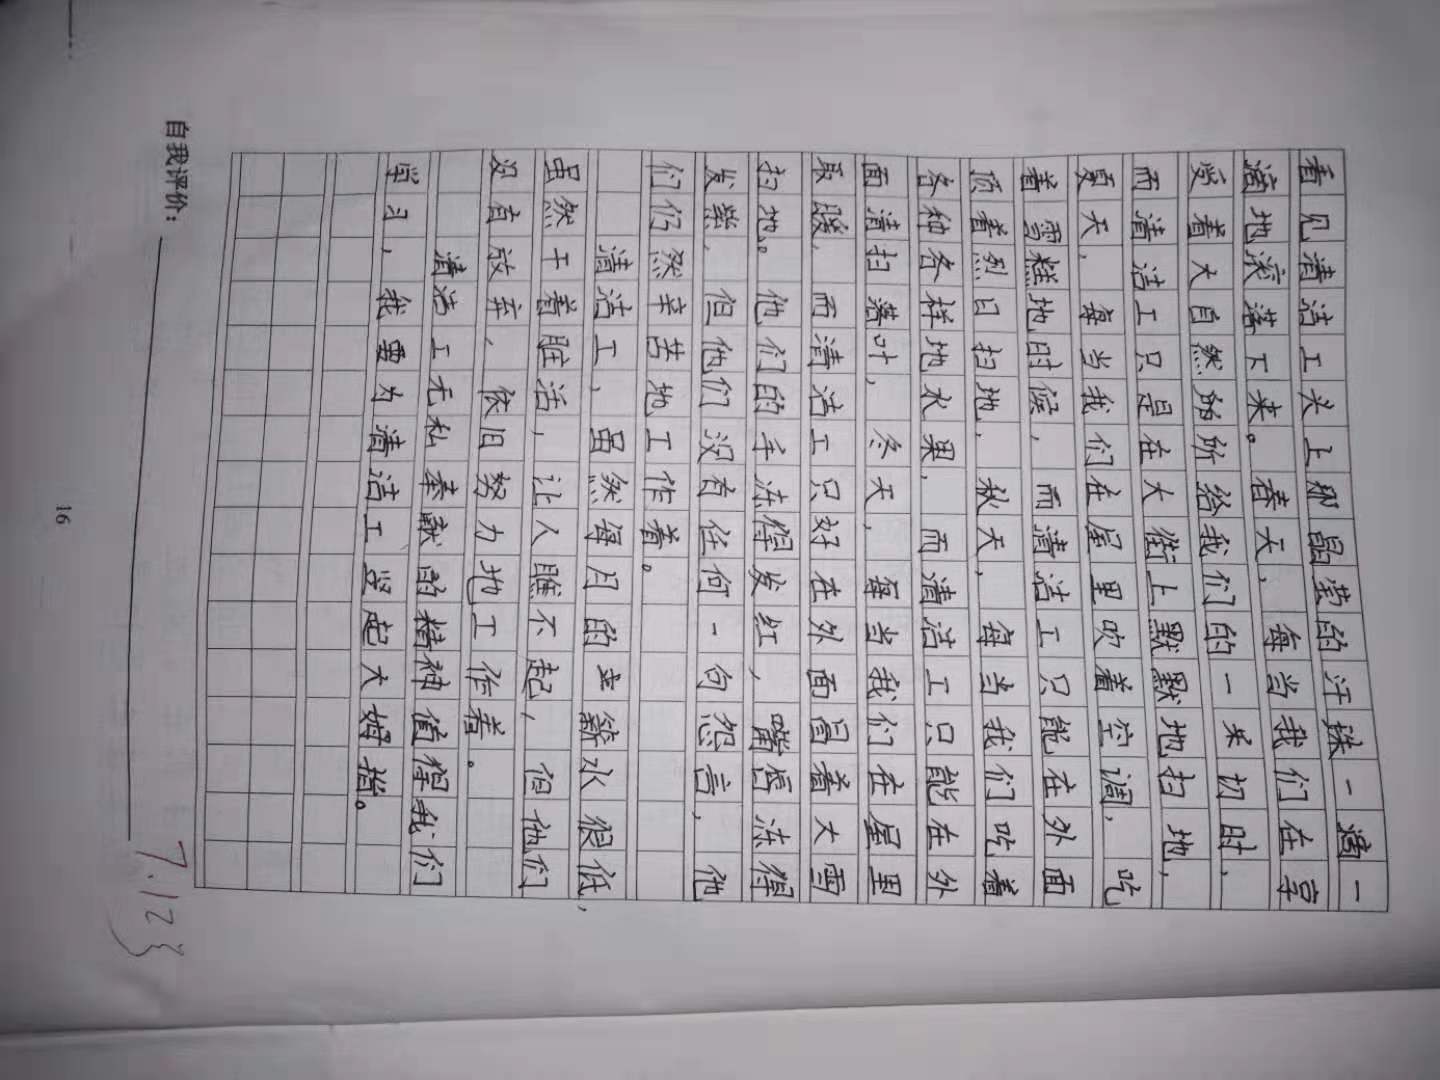 看见清洁工头上那晶莹的汗珠一滴一
滴地滚落下来。春天，每当我们在享
受着大自然所给我们的一切时，
而清洁工只是在大街上默默地扫地，
夏天，每当我们在屋里吹着空调，吃
着雪糕地时候，而清洁工只能在外面
顶着烈日扫地，秋天，每当我们吃着
各种各样地水果，而清洁工只能在外
面清扫落叶，冬天，每当我们在屋里
取暖，而清洁工只好在外面冒着大雪
扫地。他们的手冻得发红，嘴唇冻得
发紫，但他们没有任何一句怨言，他
们仍然辛苦地工作着。
清洁工，虽然每月的薪水很低，
虽然干着脏活，让人瞧不起，但他们
没有放弃，依旧努力地工作着。
清洁工无私奉献的精神值得我们
学习，我要为清洁工竖起大拇指。
自我评价：
7.12
16